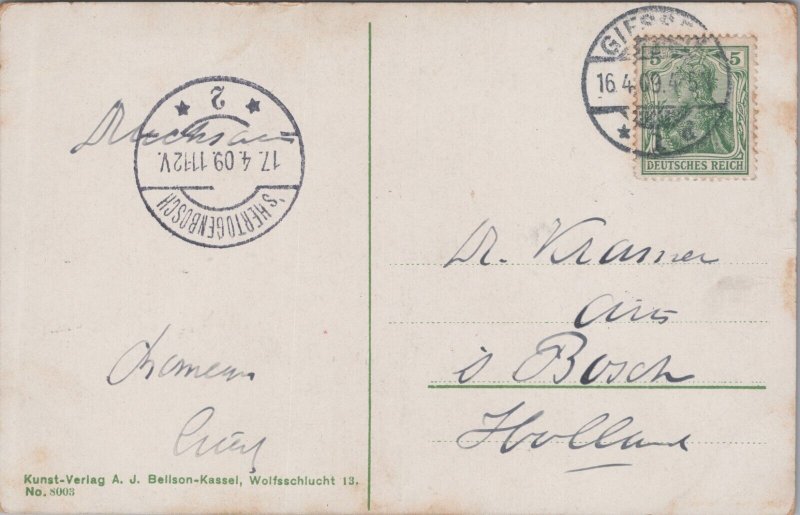 GIESSEN
16.4.09.4-
5 5
DEUTSCHES REICH
2
17.4.09.11-12V.
'S HERTOGENBOSCH
Drucksache
Dr. Kramer
Arts
s Bosch
Holland
Kunst-Verlag A. J. Bellson-Kassel, Wolfsschlucht 13.
No. 8003